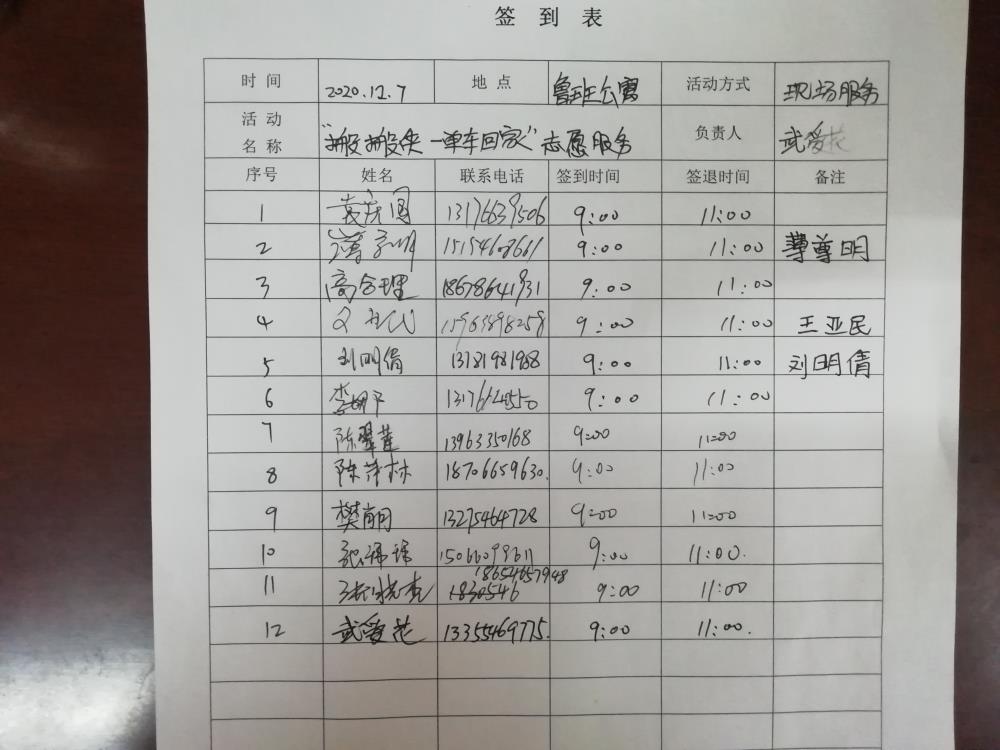 签 到 表
时 间 2020.12.7 地 点 鲁班公寓 活动方式 现场服务
活 动 名 称 "搬搬侠 一单车回家"志愿服务 负责人 武爱花
序号 姓名 联系电话 签到时间 签退时间 备注
1 13176639506 9:00 11:00
2 15154608661 9:00 11:00 尊明
3 高合理 18678641931 9:00 11:00
4 15963898258 9:00 11:00 王亚民
5 刘明倩 13181981988 9:00 11:00 刘明倩
6 9:00 11:00
7 陈翠莲 13963350168 9:00 11:00
8 陈萍林 18706659630. 9:00 11:00
9 樊丽 13275464728 9:00 11:00
10 15066099611 9:00 11:00.
11 18654657948 9:00 11:00
12 武爱花 13355469775. 9:00 11:00.